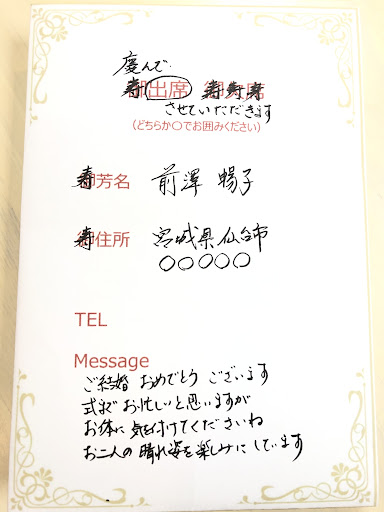 慶んで
寿出席 寿寿寿
させていただきます
(どちらか○でお囲みください)
寿芳名 前澤 暢子
寿住所 宮城県仙台市
○○○○○
TEL
Message
ご結婚 おめでとう ございます
式まで お忙しいと思いますが
お体に 気を付けてくださいね
お二人の 晴れ姿を楽しみにしています